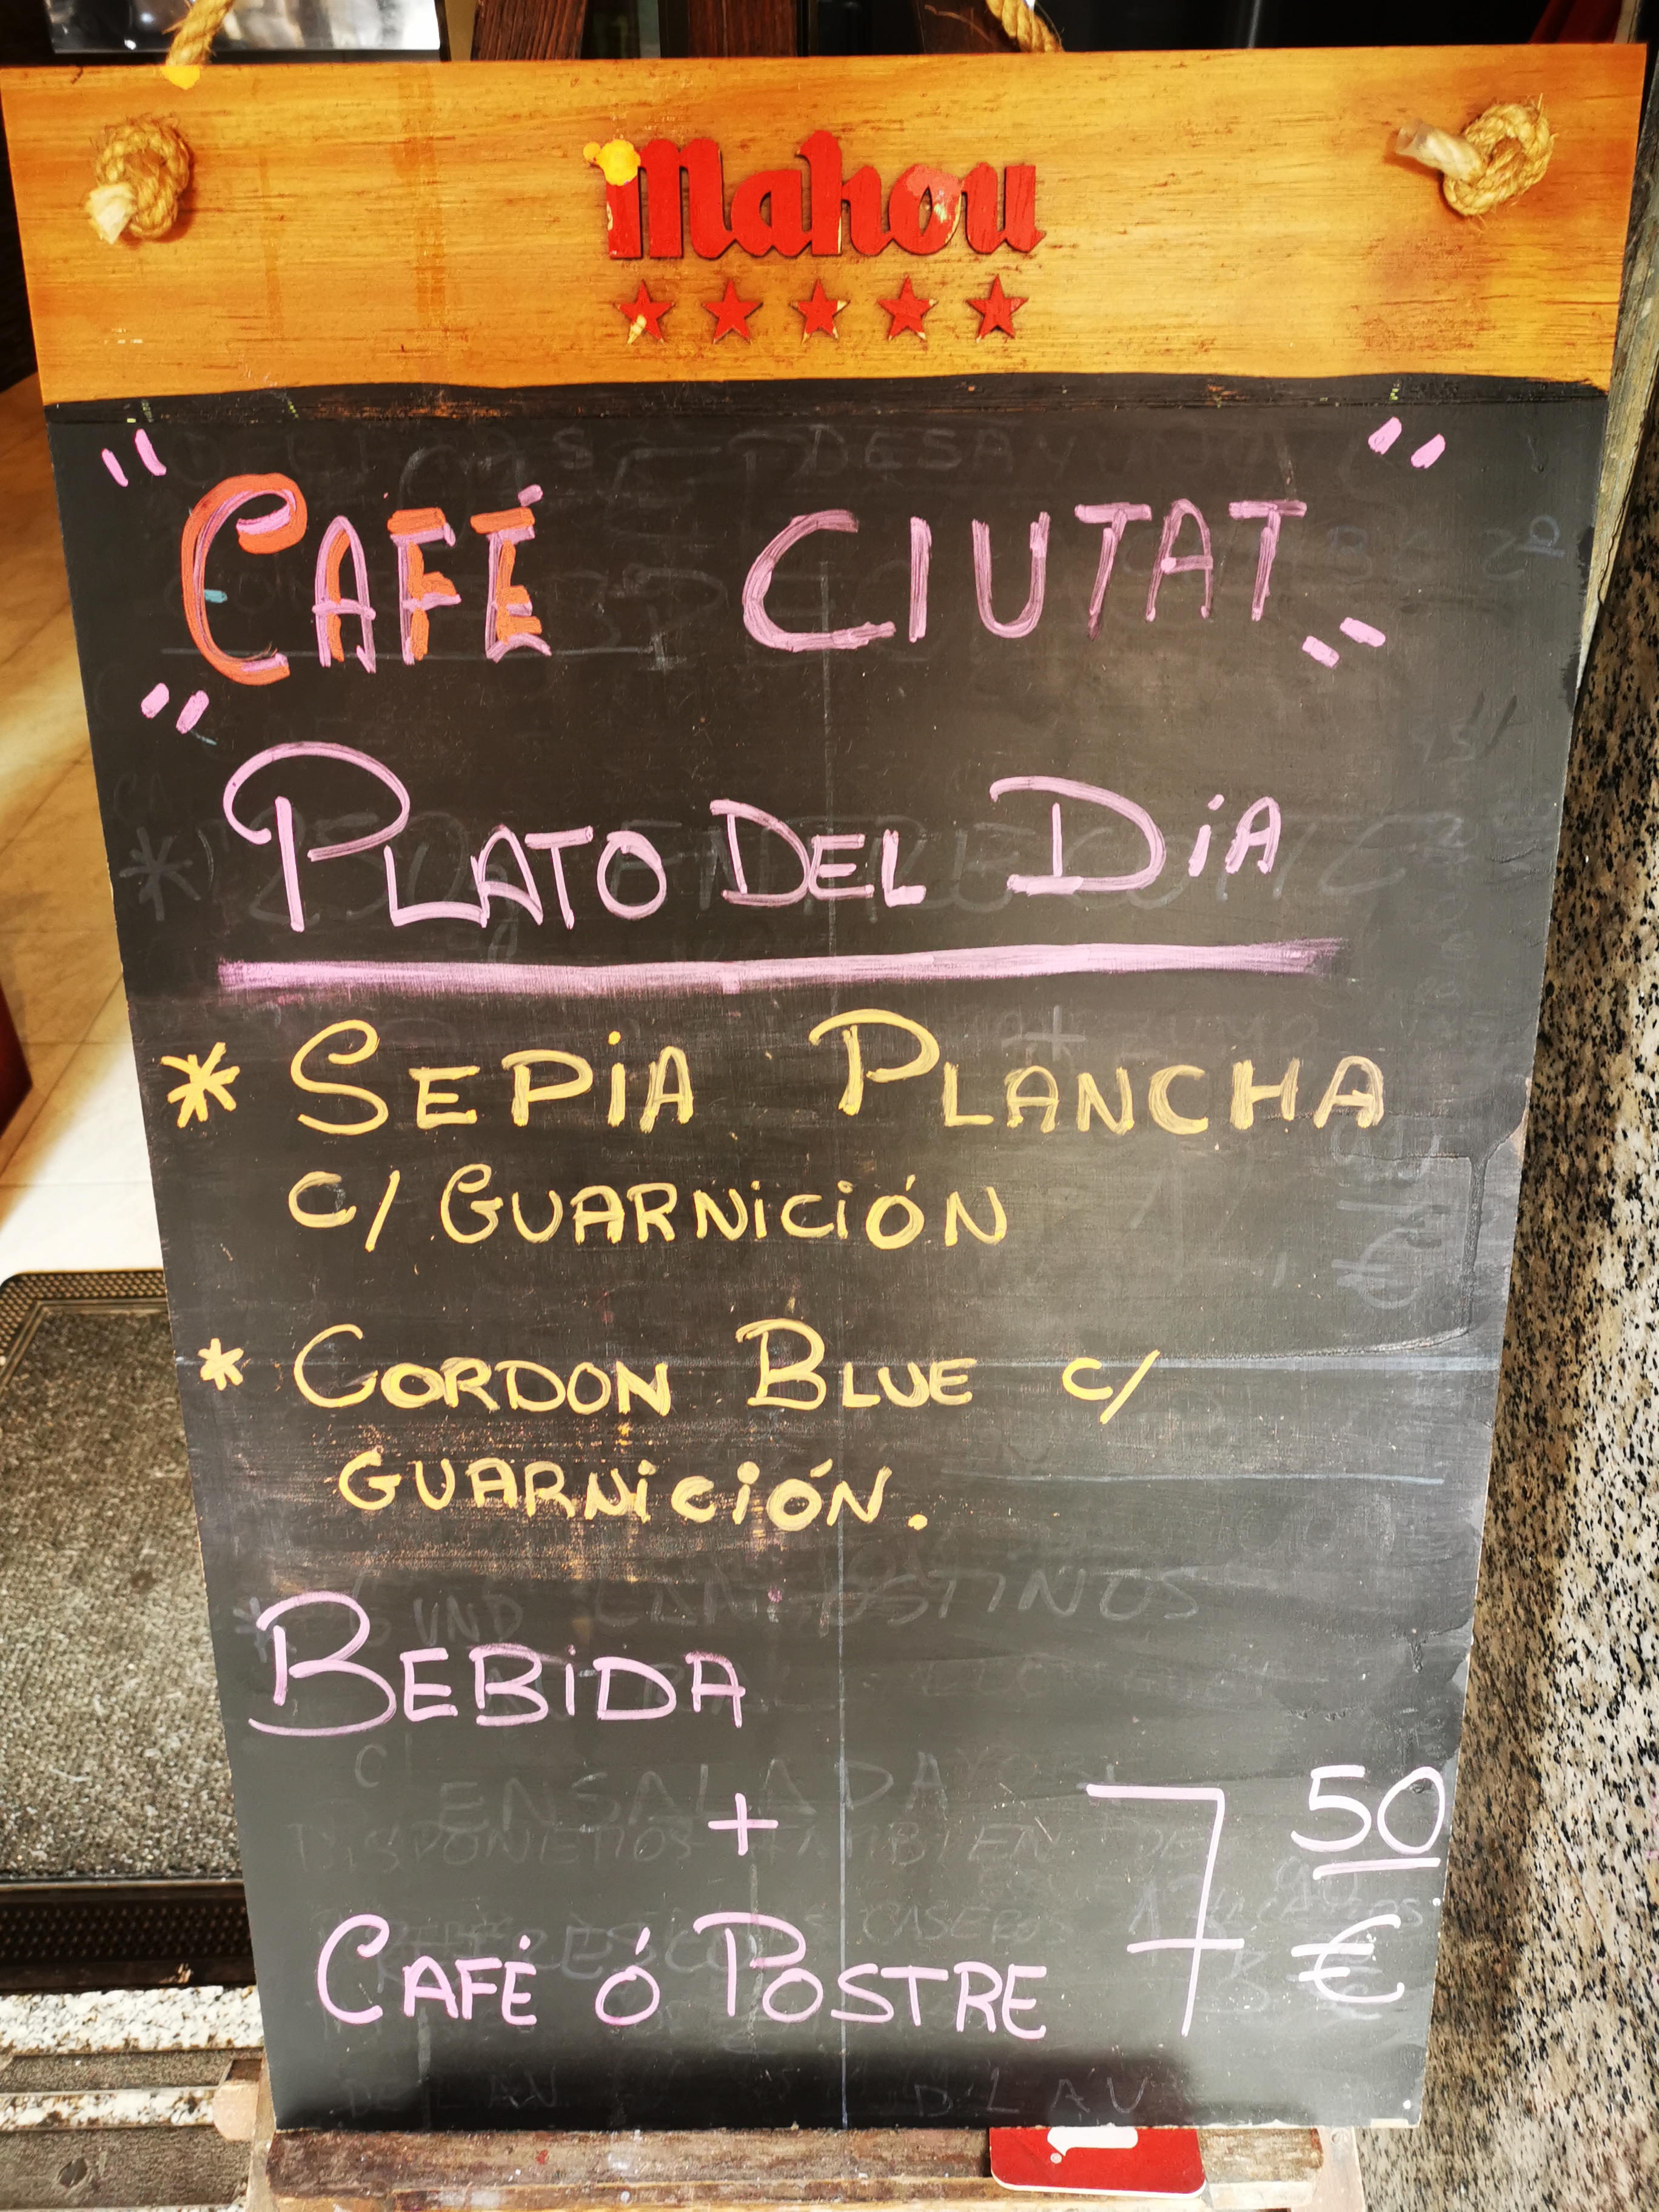 Mahou
" CAFÉ CIUTAT "
PLATO DEL DÍA
* SEPIA PLANCHA
C/ GUARNICIÓN
* CORDON BLUE C/
GUARNICIÓN.
BEBIDA
+
CAFÉ Ó POSTRE 7 50 €